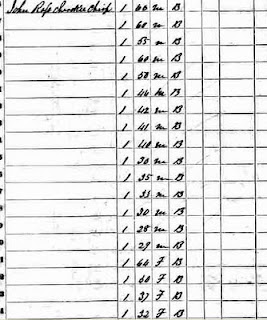 John Ross Cherokee Chief 1 60 m B
1 60 m B
1 55 m B
1 60 m B
1 50 m B
1 44 m B
1 42 m B
1 41 m B
1 40 m B
1 30 m B
1 35 m B
1 33 m B
1 30 m B
1 28 m B
1 29 m B
1 64 F B
1 50 F B
1 37 F B
1 32 F B